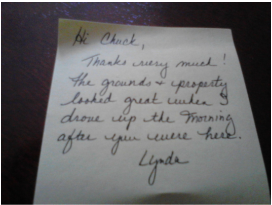 Hi Chuck,
Thanks very much!
The grounds & property
looked great when I
drove up the morning
after you were here.
Lynda